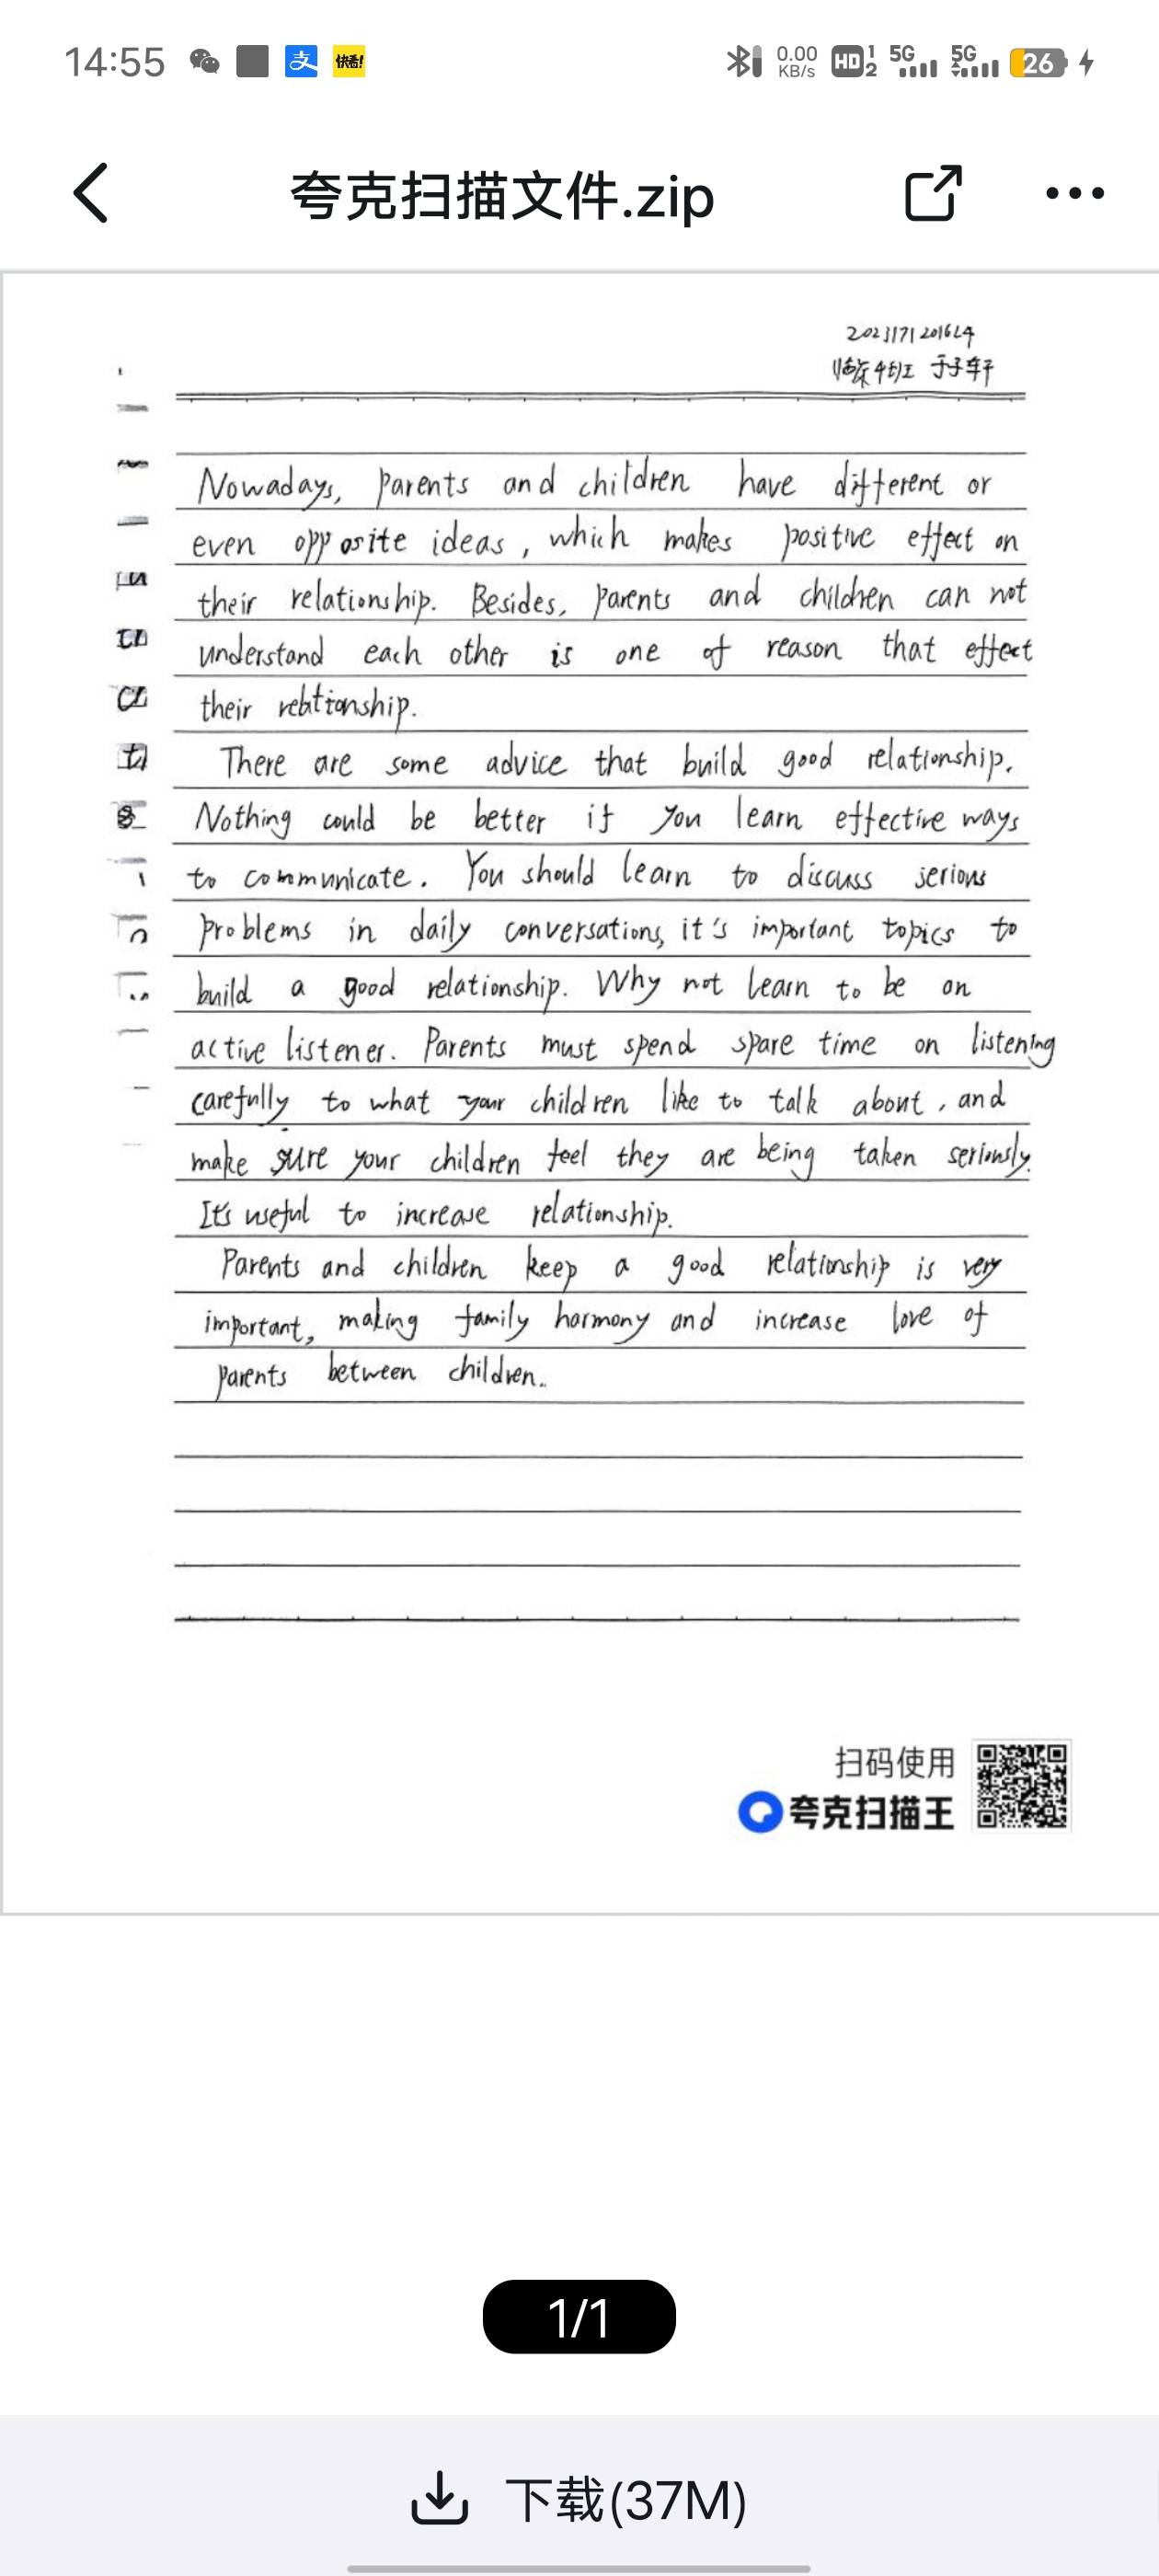 14:55 支 快看! 0.00 KB/s HD 1 2 5G 5G 26
夸克扫描文件.zip
临床4班 于子轩
Nowadays, parents and children have different or
even opposite ideas, which makes positive effect on
their relationship. Besides, parents and children can not
understand each other is one of reason that effect
their relationship.
There are some advice that build good relationship.
Nothing could be better if you learn effective ways
to communicate. You should learn to discuss serious
problems in daily conversations, it's important topics to
build a good relationship. Why not learn to be on
active listener. Parents must spend spare time on listening
carefully to what your children like to talk about, and
make sure your children feel they are being taken seriously.
It's useful to increase relationship.
Parents and children keep a good relationship is very
important, making family harmony and increase love of
parents between children.
扫码使用
夸克扫描王
1/1
下载(37M)